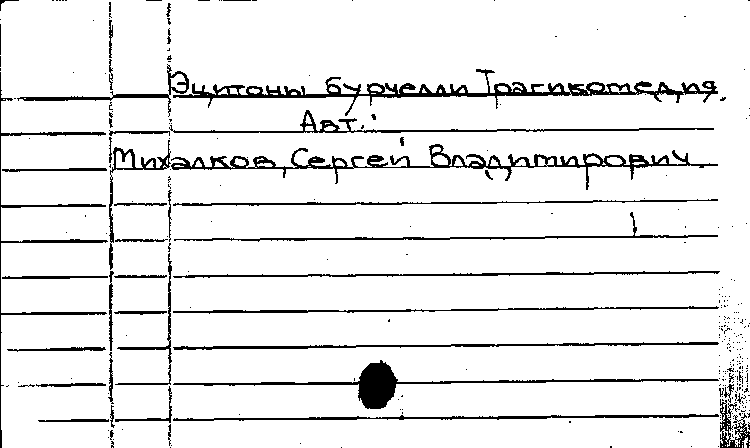 Эцитоны бурчелли Трагикомедия.
Авт.:
Михалков, Сергей Владимирович.